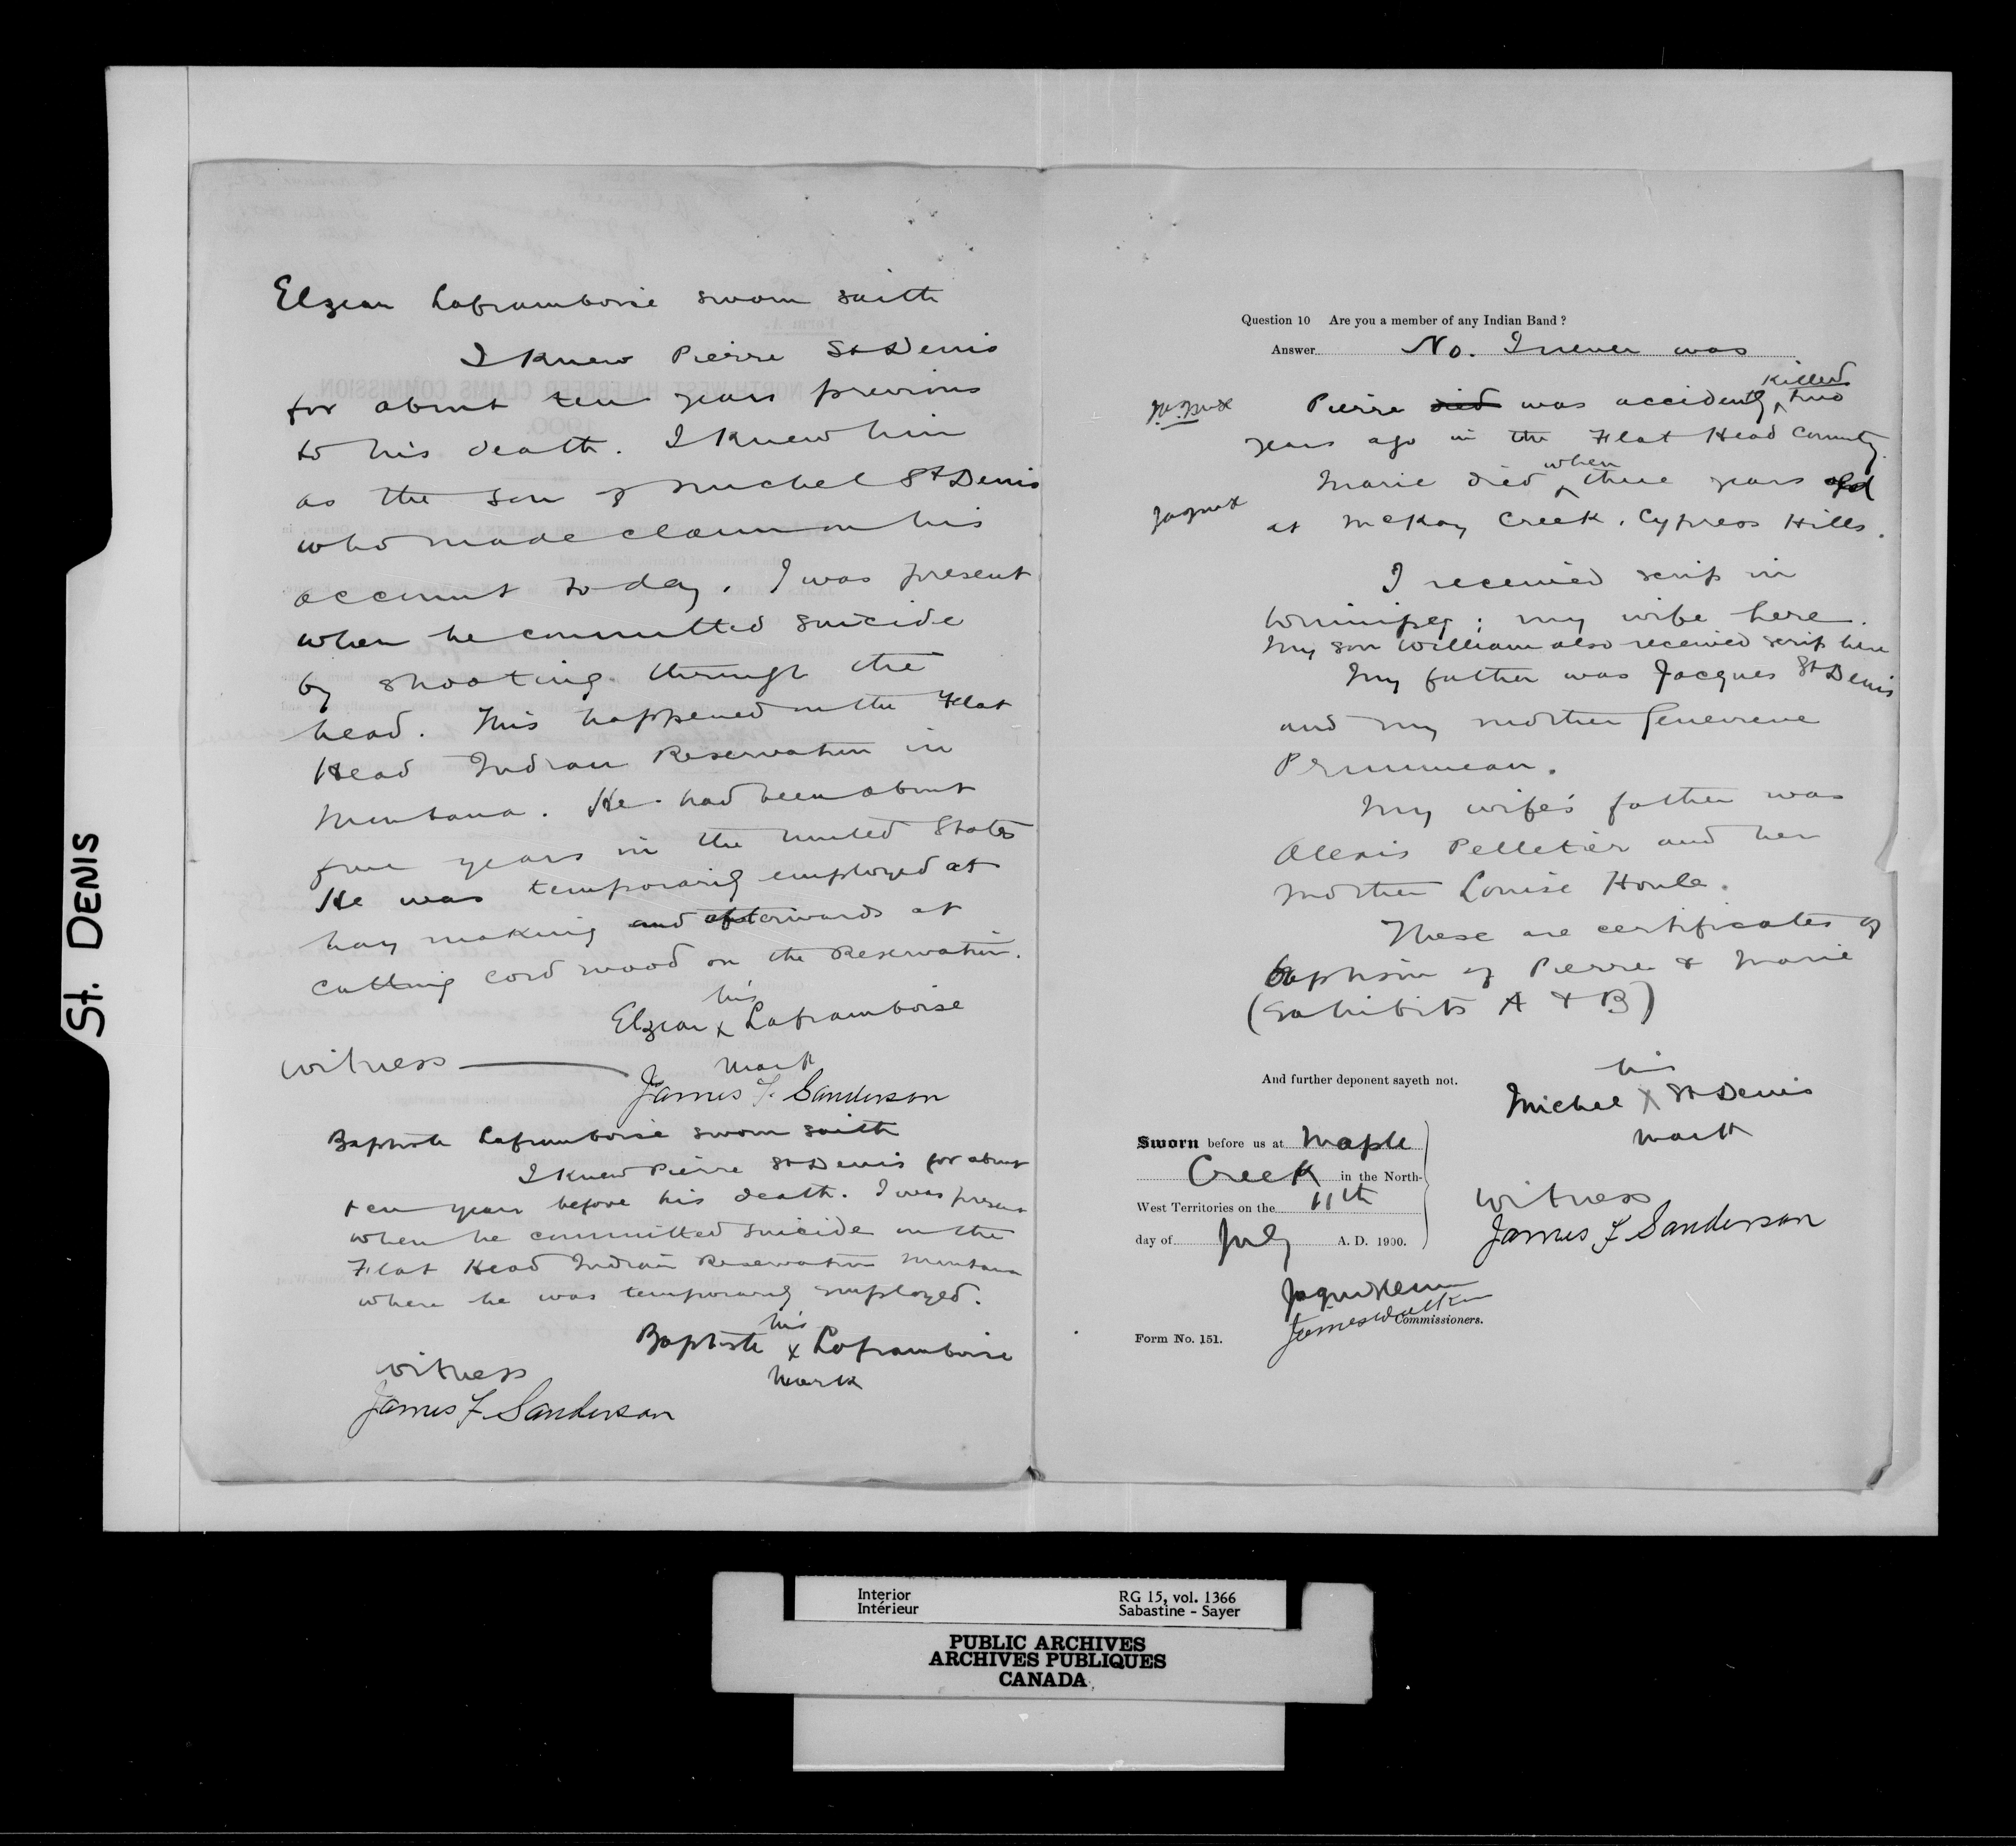 St. DENIS
Elzear Laframboise sworn saith
I knew Pierre St Denis
for about ten years previous
to his death. I knew him
as the son of Michel St Denis
who made claim on his
account today. I was present
when he committed suicide
by shooting through the
head. This happened on the Flat
Head Indian Reservation in
Montana. He had been about
five years in the United States
He was temporarily employed at
hay making and afterwards at
cutting cord wood on the Reservation.
his
Elzear x Laframboise
mark
witness
James F. Sanderson
Baptiste Laframboise sworn saith
I knew Pierre St Denis for about
ten years before his death. I was present
when he committed suicide on the
Flat Head Indian Reservation Montana
where he was temporarily employed.
his
Baptiste x Laframboise
mark
witness
James F. Sanderson
Question 10 Are you a member of any Indian Band ?
Answer No. I never was
killed
Pierre died was accidently ^ two
years ago in the Flat Head County.
when
Marie died ^ three years old
at McKay Creek. Cypress Hills.
I received scrip in
Winnipeg; my wife here.
My son William also received scrip here
My father was Jacques St Denis
and my mother Genevieve
My wife's father was
Alexis Pelletier and her
mother Louise Houle.
These are certificates of
baptism of Pierre & Marie
(Exhibits A & B)
And further deponent sayeth not.
his
Michel X St Denis
mark
Sworn before us at Maple
Creek in the North-
West Territories on the 11th
day of July A. D. 1900.
witness
James F Sanderson
James Walker
Commissioners.
Form No. 151.
Interior
Intérieur
RG 15, vol. 1366
Sabastine - Sayer
PUBLIC ARCHIVES
ARCHIVES PUBLIQUES
CANADA